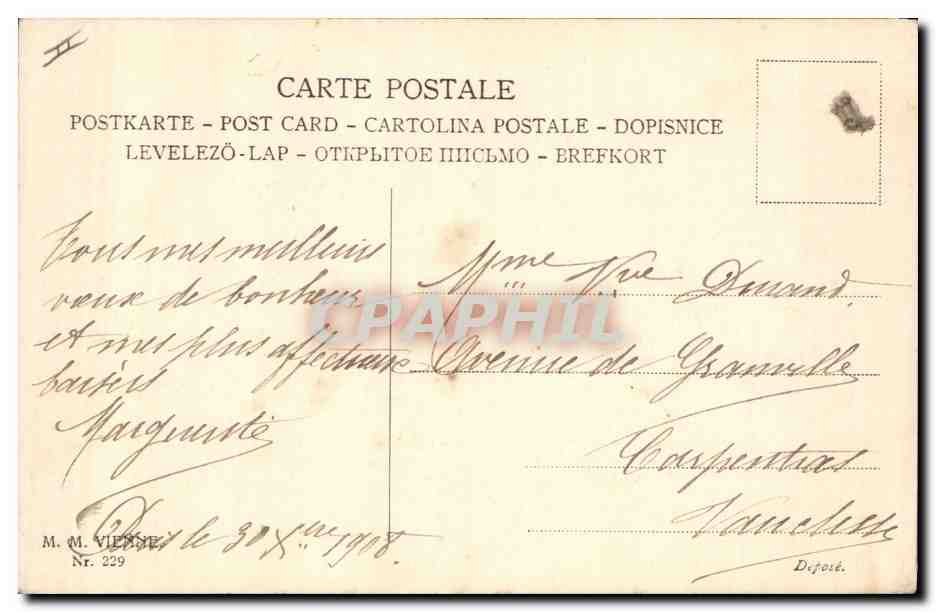 CARTE POSTALE
POSTKARTE – POST CARD – CARTOLINA POSTALE – DOPISNICE
LEVELEZÖ-LAP – ОТКРЫТОЕ ПИСЬМО – BREFKORT
Tous mes meilleurs
vœux de bonheur
et mes plus affectueux
baisers
Marguerite
le 30 Xbre 1908
M. M. VIENNE
Nr. 229
Mme Vve Durand
Avenue de Granville
Carpentras
Vaucluse
Deposé.
CPAPHIL